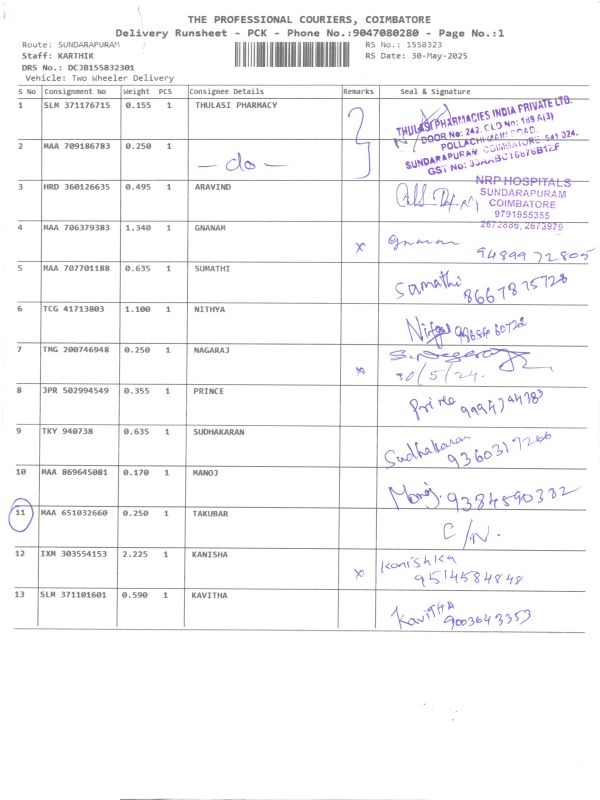 THE PROFESSIONAL COURIERS, COIMBATORE
Delivery Runsheet - PCK - Phone No.:9047080280 - Page No.:1
Route: SUNDARAPURAM
RS No.: 1558323
Staff: KARTHIK
RS Date: 30-May-2025
DRS No.: DCJB155832301
Vehicle: Two Wheeler Delivery
S No Consignment No Weight PCS Consignee Details Remarks Seal & Signature
1 SLM 371176715 0.155 1 THULASI PHARMACY
THULASI PHARMACIES INDIA PRIVATE LTD.
DOOR No: 242, OLD No: 189 A(3)
POLLACHI MAIN ROAD,
SUNDARAPURAM, COIMBATORE - 641 024.
2 MAA 709186783 0.250 1 - do -
3 HRD 360126635 0.495 1 ARAVIND
NRP HOSPITALS
SUNDARAPURAM
COIMBATORE
9791955355
2672886, 2673979
4 MAA 706379383 1.340 1 GNANAM x Gnanam
9489972805
5 MAA 707701188 0.635 1 SUMATHI Sumathi
8667875728
6 TCG 41713803 1.100 1 NITHYA
7 TMG 200746948 0.250 1 NAGARAJ x S. Nagaraj
30/5/24.
8 JPR 502994549 0.355 1 PRINCE Prince
9 TKY 940738 0.635 1 SUDHAKARAN Sudhakaran
9360317266
10 MAA 869645081 0.170 1 MANOJ Manoj
9384590332
11 MAA 651032660 0.250 1 TAKUBAR C/N.
12 IXM 303554153 2.225 1 KANISHA x Kanishka
9514584848
13 SLM 371101601 0.590 1 KAVITHA KaviTHA
9003643353